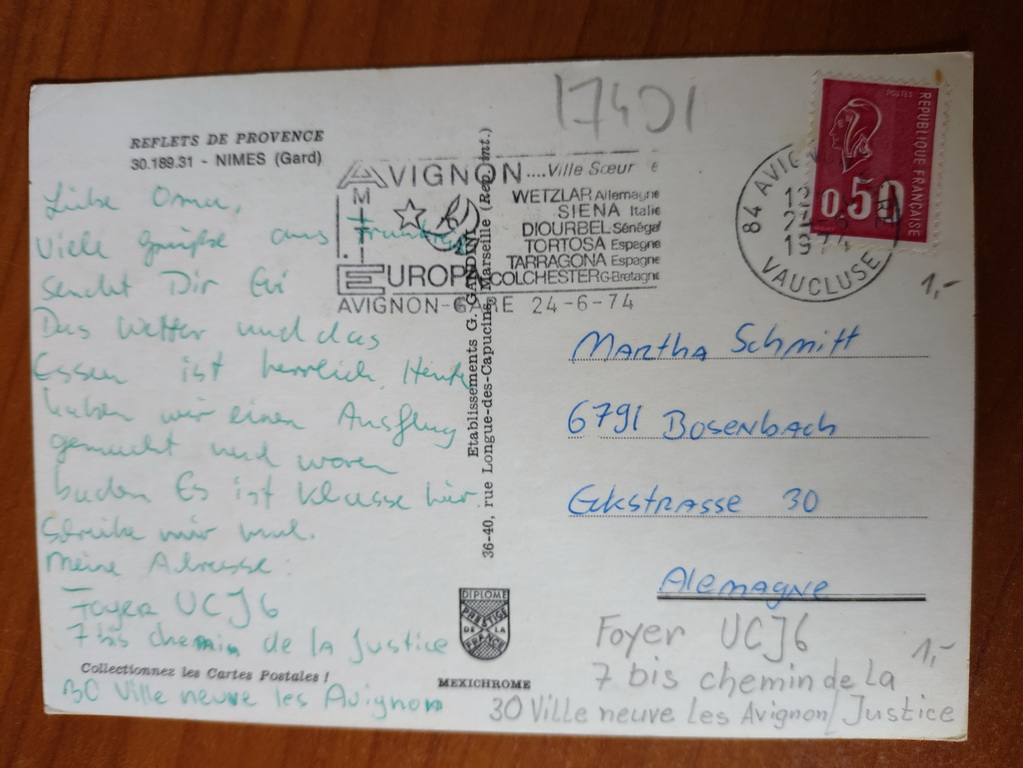 17401
REPUBLIQUE FRANÇAISE
POSTES
0,50
REFLETS DE PROVENCE
30.189.31 - NIMES (Gard)
AVIGNON....Ville Sœur
AMITIE
WETZLAR Allemagne
SIENA Italie
DIOURBEL Sénégal
TORTOSA Espagne
TARRAGONA Espagne
EUROPA COLCHESTER G-Bretagne
AVIGNON-GARE 24-6-74
84 AVIGNON
24-6
1974
VAUCLUSE
1,-
Liebe Oma,
Viele Grüße aus Frankreich
sendet Dir Evi
Das Wetter und das
Essen ist herrlich. Heute
haben wir einen Ausflug
gemacht und waren
baden Es ist klasse hier.
Schreibe mir mal.
Meine Adresse:
Foyer UCJG
7 bis chemin de la Justice
30 Ville neuve les Avignon
Collectionnez les Cartes Postales !
Etablissements G. GANDINI
36-40, rue Longue-des-Capucins, Marseille (Rep. int.)
Martha Schmitt
6791 Bosenbach
Eckstrasse 30
Alemagne
DIPLOME
PRESTIGE
DE LA
FRANCE
MEXICHROME
Foyer UCJG
1,-
7 bis chemin de la
30 Ville neuve les Avignon / Justice